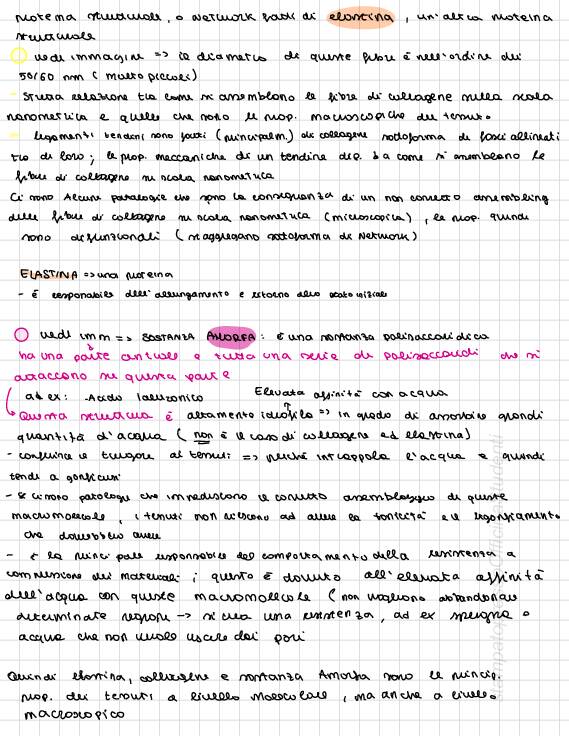 proteina strutturale, o network fatti di elastina, un'altra proteina
strutturale
vedi immagine => il diametro di queste fibre è nell'ordine dei
50/60 nm (molto piccoli)
- Stretta relazione tra come si assemblano le fibre di collagene sulla scala
nanometrica e quelle che sono le prop. macroscopiche del tessuto
- legamenti tendini sono fatti (principalm.) di collagene sottoforma di fasci allineati
tra di loro; le prop. meccaniche di un tendine dip. da come si assemblano le
fibre di collagene su scala nanometrica
Ci sono Alcune patologie che sono la conseguenza di un non corretto assembling
delle fibre di collagene su scala nanometrica (microscopica), le prop. quindi
sono disfunzionali (si aggregano sottoforma di Network)
ELASTINA => una proteina
- è responsabile dell'allungamento e ritorno allo stato iniziale
vedi imm => SOSTANZA AMORFA: è una sostanza polisaccaridica
ha una parte centrale e tutta una serie di polisaccaridi che si
attaccano su questa parte
ad ex: Acido Ialuronico Elevata affinità con acqua
Questa struttura è altamente idrofila => in grado di assorbire grandi
quantità d'acqua (non è il caso di collagene ed elastina)
- conferisce il turgore ai tessuti => perché intrappola l'acqua e quindi
tende a gonfiarsi
- Se ci sono patologie che impediscono il corretto assemblaggio di queste
macromolecole, i tessuti non riescono ad avere la tonicità e il rigonfiamento
che dovrebbero avere
- è la principale responsabile del comportamento della resistenza a
compressione dei materiali; questo è dovuto all'elevata affinità
dell'acqua con queste macromolecole (non vogliono abbandonare
determinate regioni -> si crea una resistenza, ad ex spugna o
acqua che non vuole uscire dai pori
Quindi elastina, collagene e sostanza Amorfa sono le princip.
prop. dei tessuti a livello molecolare, ma anche a livello
macroscopico